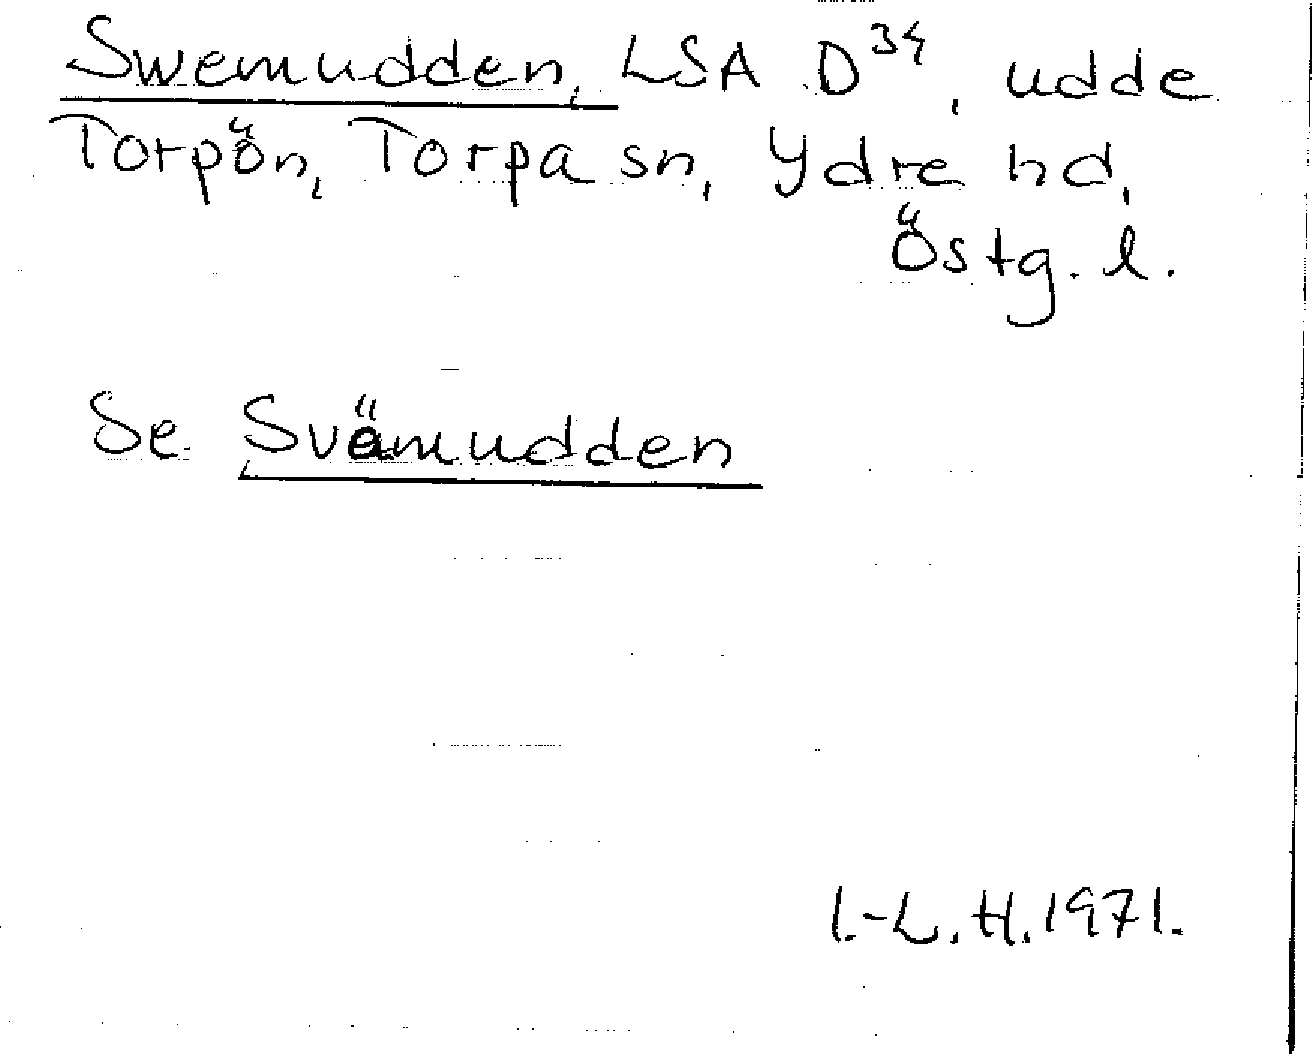 Swemudden, LSA D³⁴, udde
Torpön, Torpa sn, Ydre hd,
Östg. l.
Se Svämudden
I.-L. H. 1971.